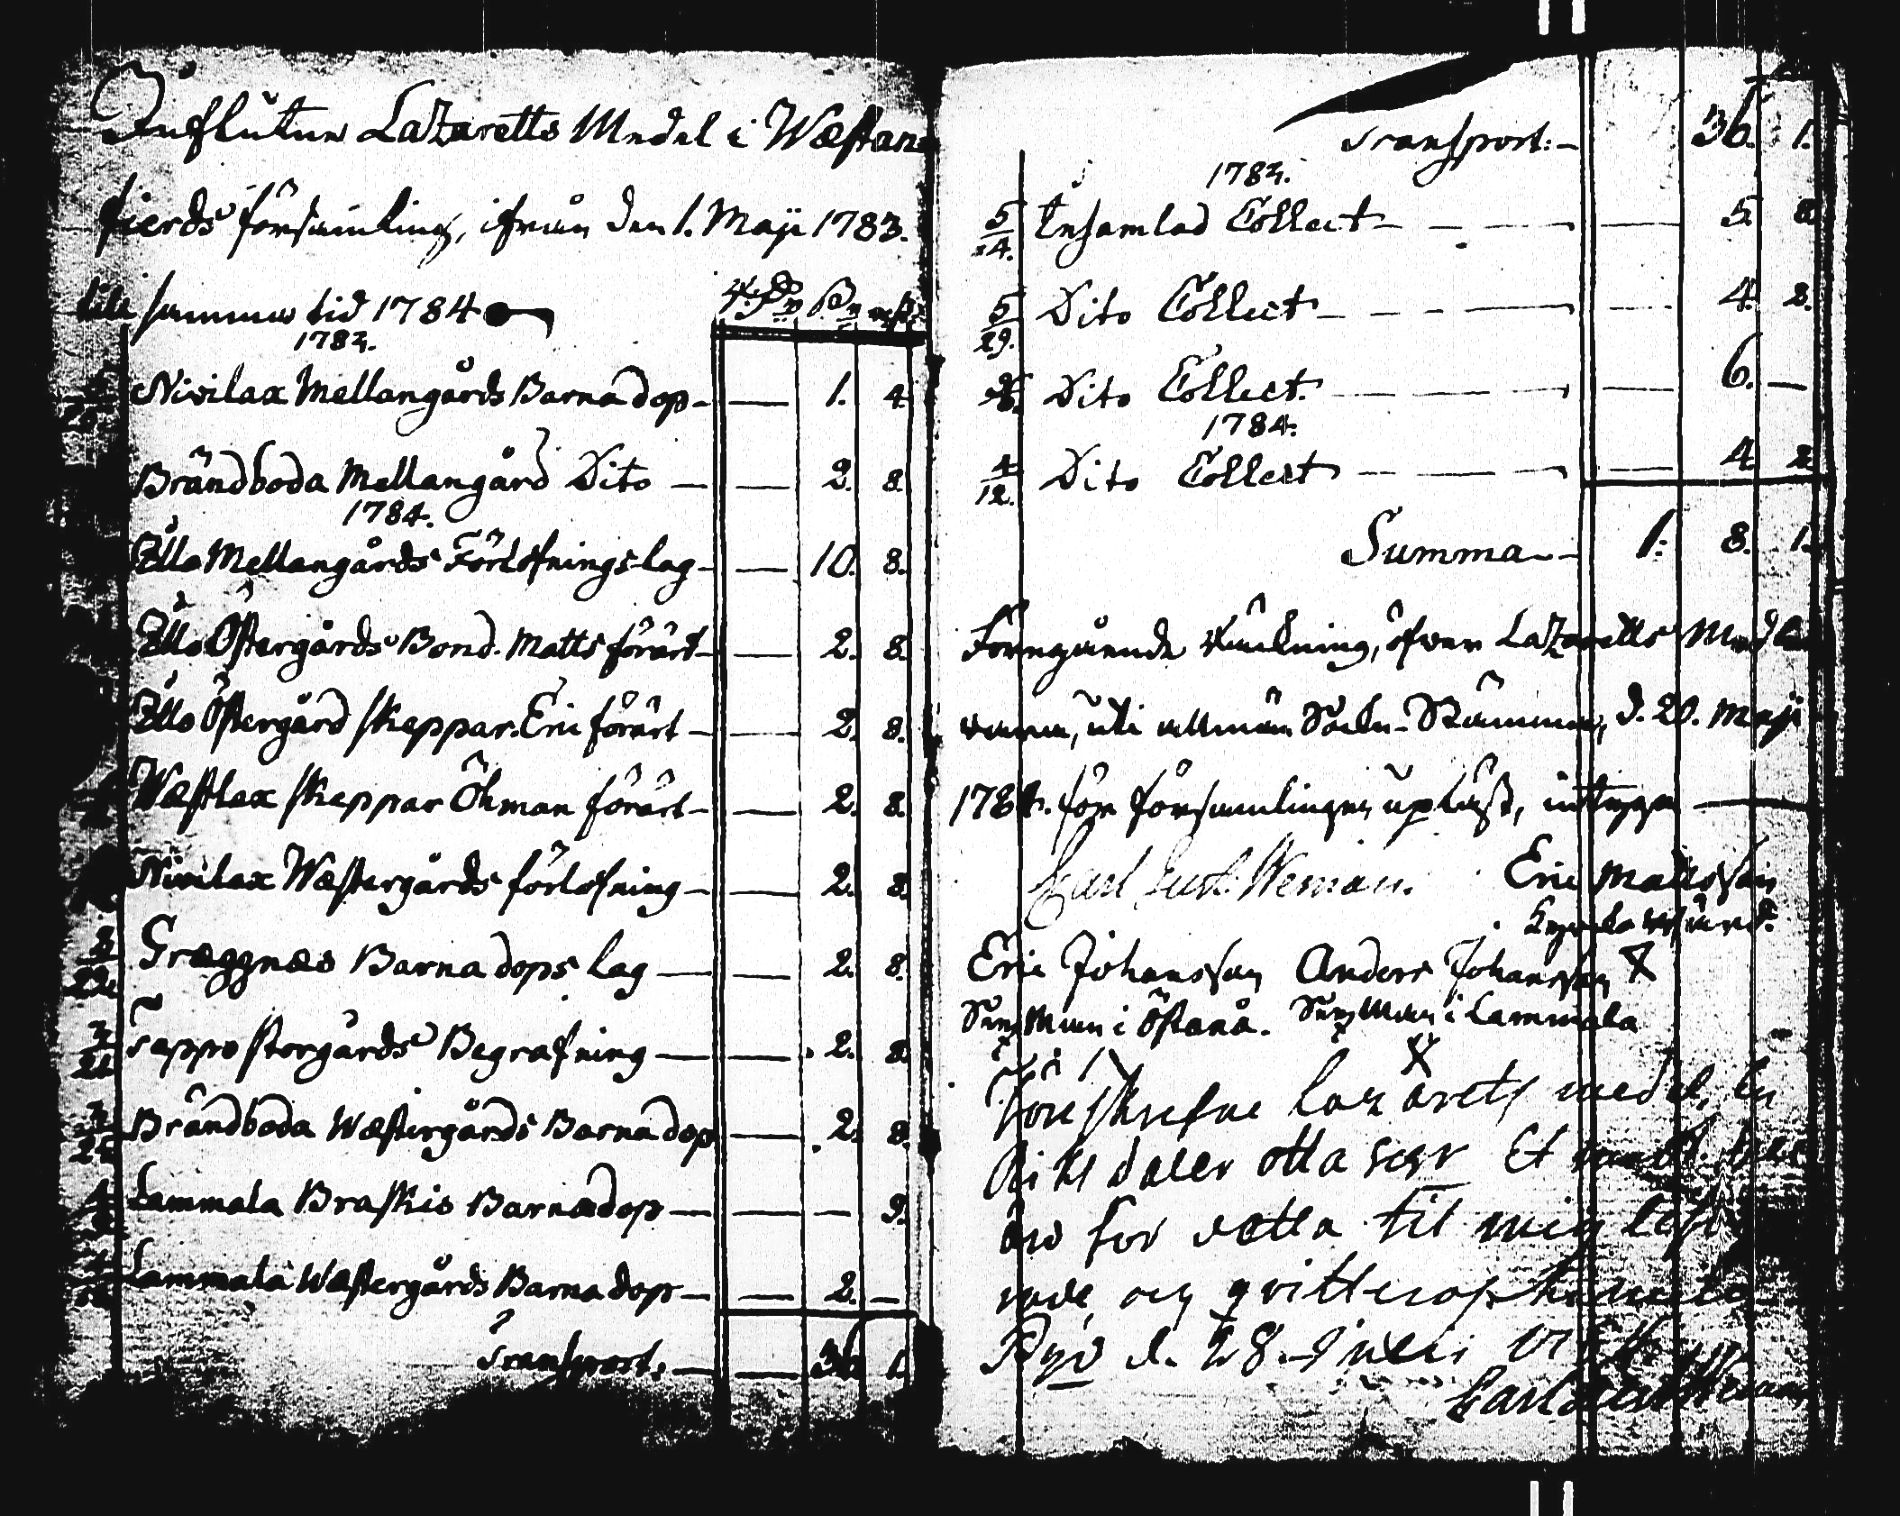 Influtne Lazaretts Medel i Wæstan-
fierds församling, ifrån den 1. Maji 1783.
till samma tid 1784
1783.
Nivilax Mellangårds Barnadop — 1. 4.
Brändboda Mellangård Dito — 2. 8.
1784.
Illo Mellangårds Förlofningslag — 10. 8.
Illo Östergårds Bond. Matts förärt — 2. 8.
Illo Östergård skeppar. Eric förärt — 2. 8.
Wæstlax skeppar Öhman förärt — 2. 8.
Nivilax Wæstergårds förlofning — 2. 8.
Græggnæs Barnadops lag — 2. 8.
Tappo storgårds Begrafning — 2. 8.
Brändboda Wæstergårds Barnadop — 2. 8.
Lammala Braskis Barnadop — — 9.
Lammala Wæstergårds Barnadop — 2. —
Transport: — 36. 1.
Transport: — 36. 1.
1783.
5/24. Insamlad Collect — 5. 8.
5/29. Dito Collect — 4. 8.
Dito Collect. — 6. —
1784.
4/12. Dito Collect — 4. 2.
Summa — 1. 8. 1.
Föregående räkning, öfwer Lazaretts Medlen
wara, uti allmän Sockn-Stämma, d. 20. Maji
1784. för församlingen upläst, intyga
Carl Gust. Weman. Eric Mattsson
Kyrckowärd.
Eric Johansson Anders Johansson
Sexman i Östanå. Sexman i Lammala
Föreskrefne lazarets medel, en
Riksdaler otta scgr Et
äro for rætta til mig
rade, och qvitteras
d. 28. Juni 1784
Carl Gust Weman